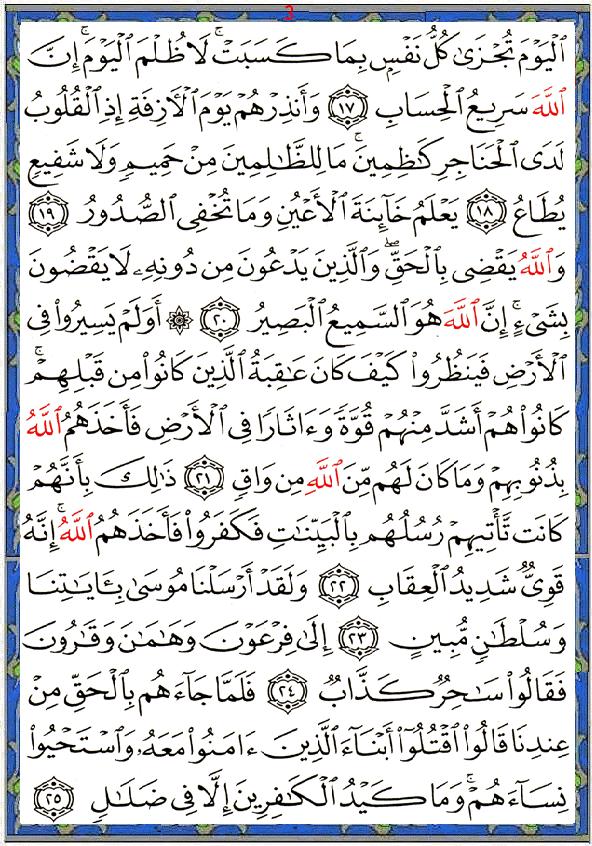 3
ٱلۡيَوۡمَ تُجۡزَىٰ كُلُّ نَفۡسِۭ بِمَا كَسَبَتۡۚ لَا ظُلۡمَ ٱلۡيَوۡمَۚ إِنَّ
ٱللَّهَ سَرِيعُ ٱلۡحِسَابِ ١٧ وَأَنذِرۡهُمۡ يَوۡمَ ٱلۡأٓزِفَةِ إِذِ ٱلۡقُلُوبُ
لَدَى ٱلۡحَنَاجِرِ كَٰظِمِينَۚ مَا لِلظَّٰلِمِينَ مِنۡ حَمِيمٖ وَلَا شَفِيعٖ
يُطَاعُ ١٨ يَعۡلَمُ خَآئِنَةَ ٱلۡأَعۡيُنِ وَمَا تُخۡفِي ٱلصُّدُورُ ١٩
وَٱللَّهُ يَقۡضِي بِٱلۡحَقِّۖ وَٱلَّذِينَ يَدۡعُونَ مِن دُونِهِۦ لَا يَقۡضُونَ
بِشَيۡءٍۗ إِنَّ ٱللَّهَ هُوَ ٱلسَّمِيعُ ٱلۡبَصِيرُ ٢٠ ۞ أَوَلَمۡ يَسِيرُواْ فِي
ٱلۡأَرۡضِ فَيَنظُرُواْ كَيۡفَ كَانَ عَٰقِبَةُ ٱلَّذِينَ كَانُواْ مِن قَبۡلِهِمۡۚ
كَانُواْ هُمۡ أَشَدَّ مِنۡهُمۡ قُوَّةٗ وَءَاثَارٗا فِي ٱلۡأَرۡضِ فَأَخَذَهُمُ ٱللَّهُ
بِذُنُوبِهِمۡ وَمَا كَانَ لَهُم مِّنَ ٱللَّهِ مِن وَاقٖ ٢١ ذَٰلِكَ بِأَنَّهُمۡ
كَانَت تَّأۡتِيهِمۡ رُسُلُهُم بِٱلۡبَيِّنَٰتِ فَكَفَرُواْ فَأَخَذَهُمُ ٱللَّهُۚ إِنَّهُۥ
قَوِيّٞ شَدِيدُ ٱلۡعِقَابِ ٢٢ وَلَقَدۡ أَرۡسَلۡنَا مُوسَىٰ بِـَٔايَٰتِنَا
وَسُلۡطَٰنٖ مُّبِينٍ ٢٣ إِلَىٰ فِرۡعَوۡنَ وَهَٰمَٰنَ وَقَٰرُونَ
فَقَالُواْ سَٰحِرٞ كَذَّابٞ ٢٤ فَلَمَّا جَآءَهُم بِٱلۡحَقِّ مِنۡ
عِندِنَا قَالُواْ ٱقۡتُلُوٓاْ أَبۡنَآءَ ٱلَّذِينَ ءَامَنُواْ مَعَهُۥ وَٱسۡتَحۡيُواْ
نِسَآءَهُمۡۚ وَمَا كَيۡدُ ٱلۡكَٰفِرِينَ إِلَّا فِي ضَلَٰلٖ ٢٥